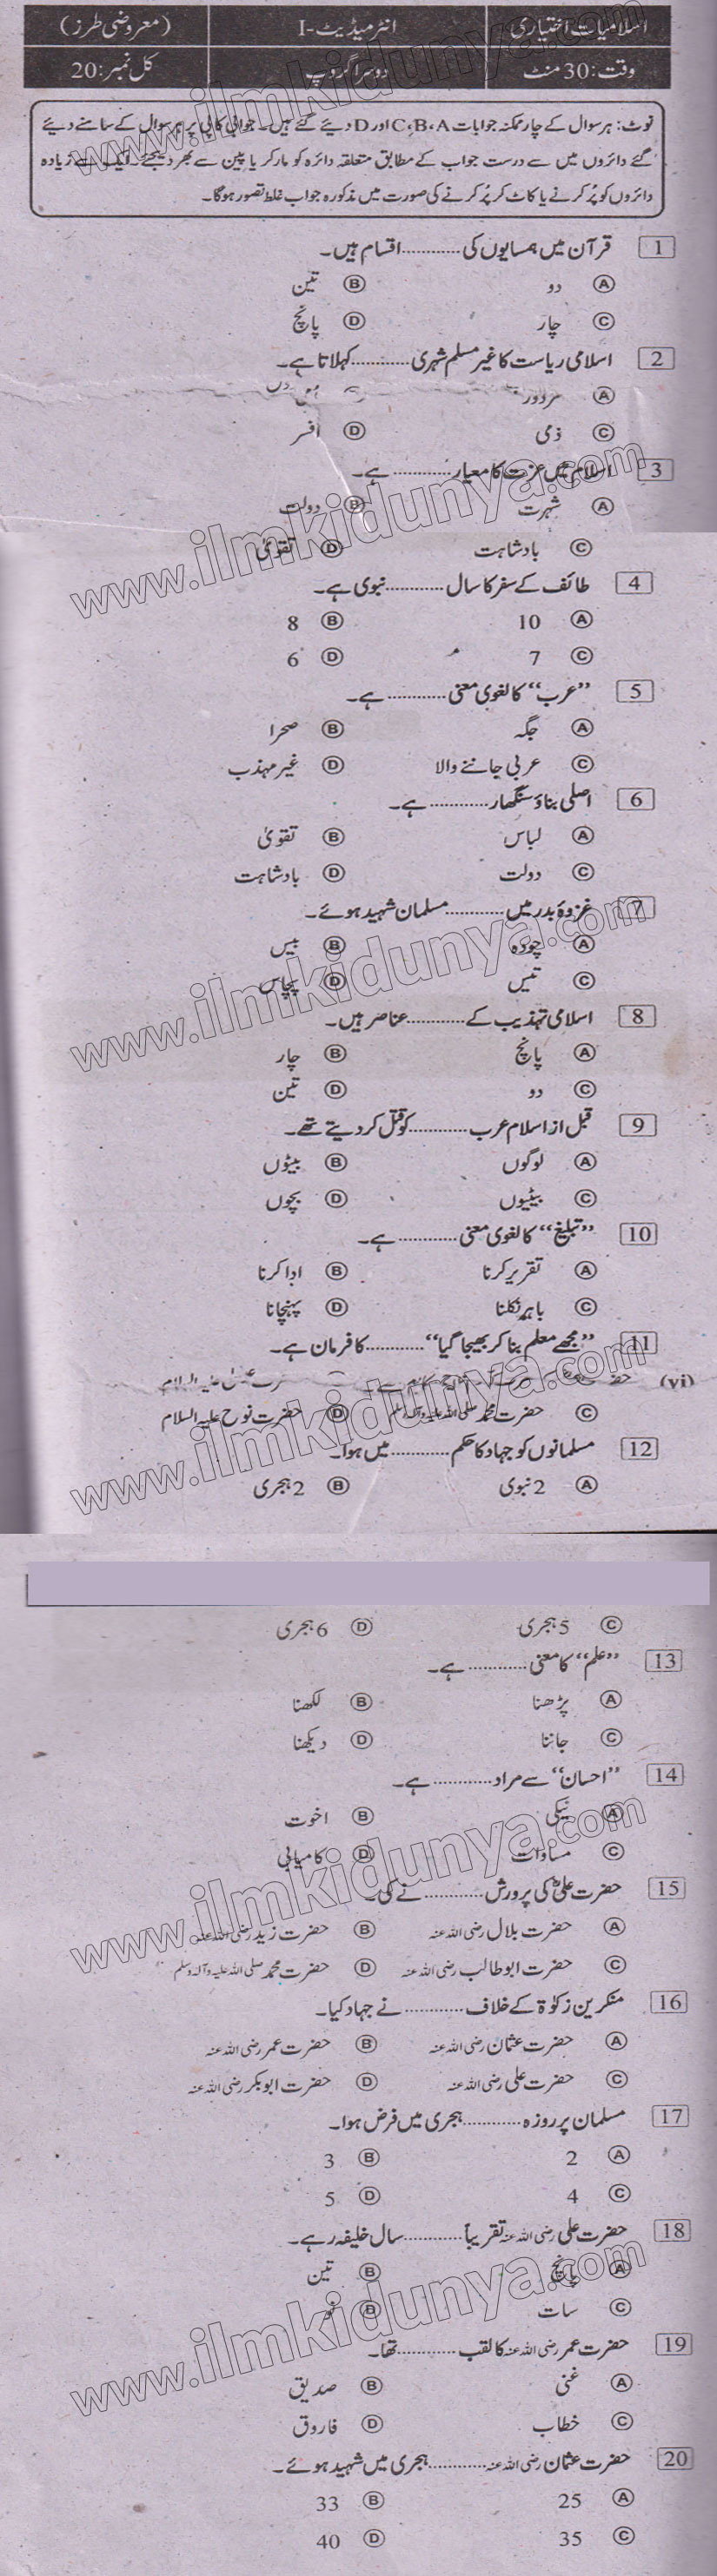 اسلامیات اختیاری انٹرمیڈیٹ-I (معروضی طرز)
وقت: 30 منٹ دوسرا گروپ کل نمبر: 20
نوٹ: ہر سوال کے چار ممکنہ جوابات C،B،A اور D دیئے گئے ہیں۔ جوابی کاپی پر ہر سوال کے سامنے دیئے
گئے دائروں میں سے درست جواب کے مطابق متعلقہ دائرہ کو مارکر یا پین سے بھر دیجئے۔ ایک سے زیادہ
دائروں کو پُر کرنے یا کاٹ کر پُر کرنے کی صورت میں مذکورہ جواب غلط تصور ہوگا۔
1 قرآن میں ہمسایوں کی ............ اقسام ہیں۔
A دو B تین
C چار D پانچ
2 اسلامی ریاست کا غیر مسلم شہری ............ کہلاتا ہے۔
A مزدور B
C ذمی D افسر
3 اسلام میں عزت کا معیار ............ ہے۔
A شہرت B دولت
C بادشاہت D تقویٰ
4 طائف کے سفر کا سال ............ نبوی ہے۔
A 10 B 8
C 7 D 6
5 ”عرب“ کا لغوی معنی ............ ہے۔
A جگہ B صحرا
C عربی جاننے والا D غیر مہذب
6 اصلی بناؤ سنگھار ............ ہے۔
A لباس B تقویٰ
C دولت D بادشاہت
7 غزوۂ بدر میں ............ مسلمان شہید ہوئے۔
A چودہ B بیس
C تیس D پچاس
8 اسلامی تہذیب کے ............ عناصر ہیں۔
A پانچ B چار
C دو D تین
9 قبل از اسلام عرب ............ کو قتل کر دیتے تھے۔
A لوگوں B بیٹوں
C بیٹیوں D بچوں
10 ”تبلیغ“ کا لغوی معنی ............ ہے۔
A تقریر کرنا B ادا کرنا
C باہر نکلنا D پہنچانا
11 ”مجھے معلم بنا کر بھیجا گیا“ ............ کا فرمان ہے۔
(vi) علیہ السلام
C حضرت محمد صلی اللہ علیہ وآلہ وسلم D حضرت نوح علیہ السلام
12 مسلمانوں کو جہاد کا حکم ............ میں ہوا۔
A 2 نبوی B 2 ہجری
C 5 ہجری D 6 ہجری
13 ”علم“ کا معنی ............ ہے۔
A پڑھنا B لکھنا
C جاننا D دیکھنا
14 ”احسان“ سے مراد ............ ہے۔
A نیکی B اخوت
C مساوات D کامیابی
15 حضرت علیؓ کی پرورش ............ نے کی۔
A حضرت بلال رضی اللہ عنہ B حضرت زید رضی اللہ عنہ
C حضرت ابو طالب رضی اللہ عنہ D حضرت محمد صلی اللہ علیہ وآلہ وسلم
16 منکرین زکوٰۃ کے خلاف ............ نے جہاد کیا۔
A حضرت عثمان رضی اللہ عنہ B حضرت عمر رضی اللہ عنہ
C حضرت علی رضی اللہ عنہ D حضرت ابوبکر رضی اللہ عنہ
17 مسلمان پر روزہ ............ ہجری میں فرض ہوا۔
A 2 B 3
C 4 D 5
18 حضرت علی رضی اللہ عنہ تقریباً ............ سال خلیفہ رہے۔
A پانچ B تین
C سات D نو
19 حضرت عمر رضی اللہ عنہ کا لقب ............ تھا۔
A غنی B صدیق
C خطاب D فاروق
20 حضرت عثمان رضی اللہ عنہ ............ ہجری میں شہید ہوئے۔
A 25 B 33
C 35 D 40
www.ilmkidunya.com
www.ilmkidunya.com
www.ilmkidunya.com
www.ilmkidunya.com
www.ilmkidunya.com
www.ilmkidunya.com